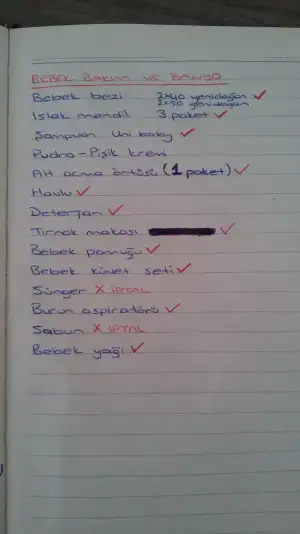 BEBEK BAKIM VE BANYO
Bebek bezi 2x40 yenidoğan ✓
2x50 yenidoğan
Islak mendil 3 paket ✓
Şampuan Uni baby ✓
Pudra - Pişik kremi
Alt açma örtüsü (1 paket) ✓
Havlu ✓
Deterjan ✓
Tırnak makası ✓
Bebek pamuğu ✓
Bebek küvet seti ✓
Sünger X İPTAL
Burun aspiratörü ✓
Sabun X İPTAL
Bebek yağı ✓